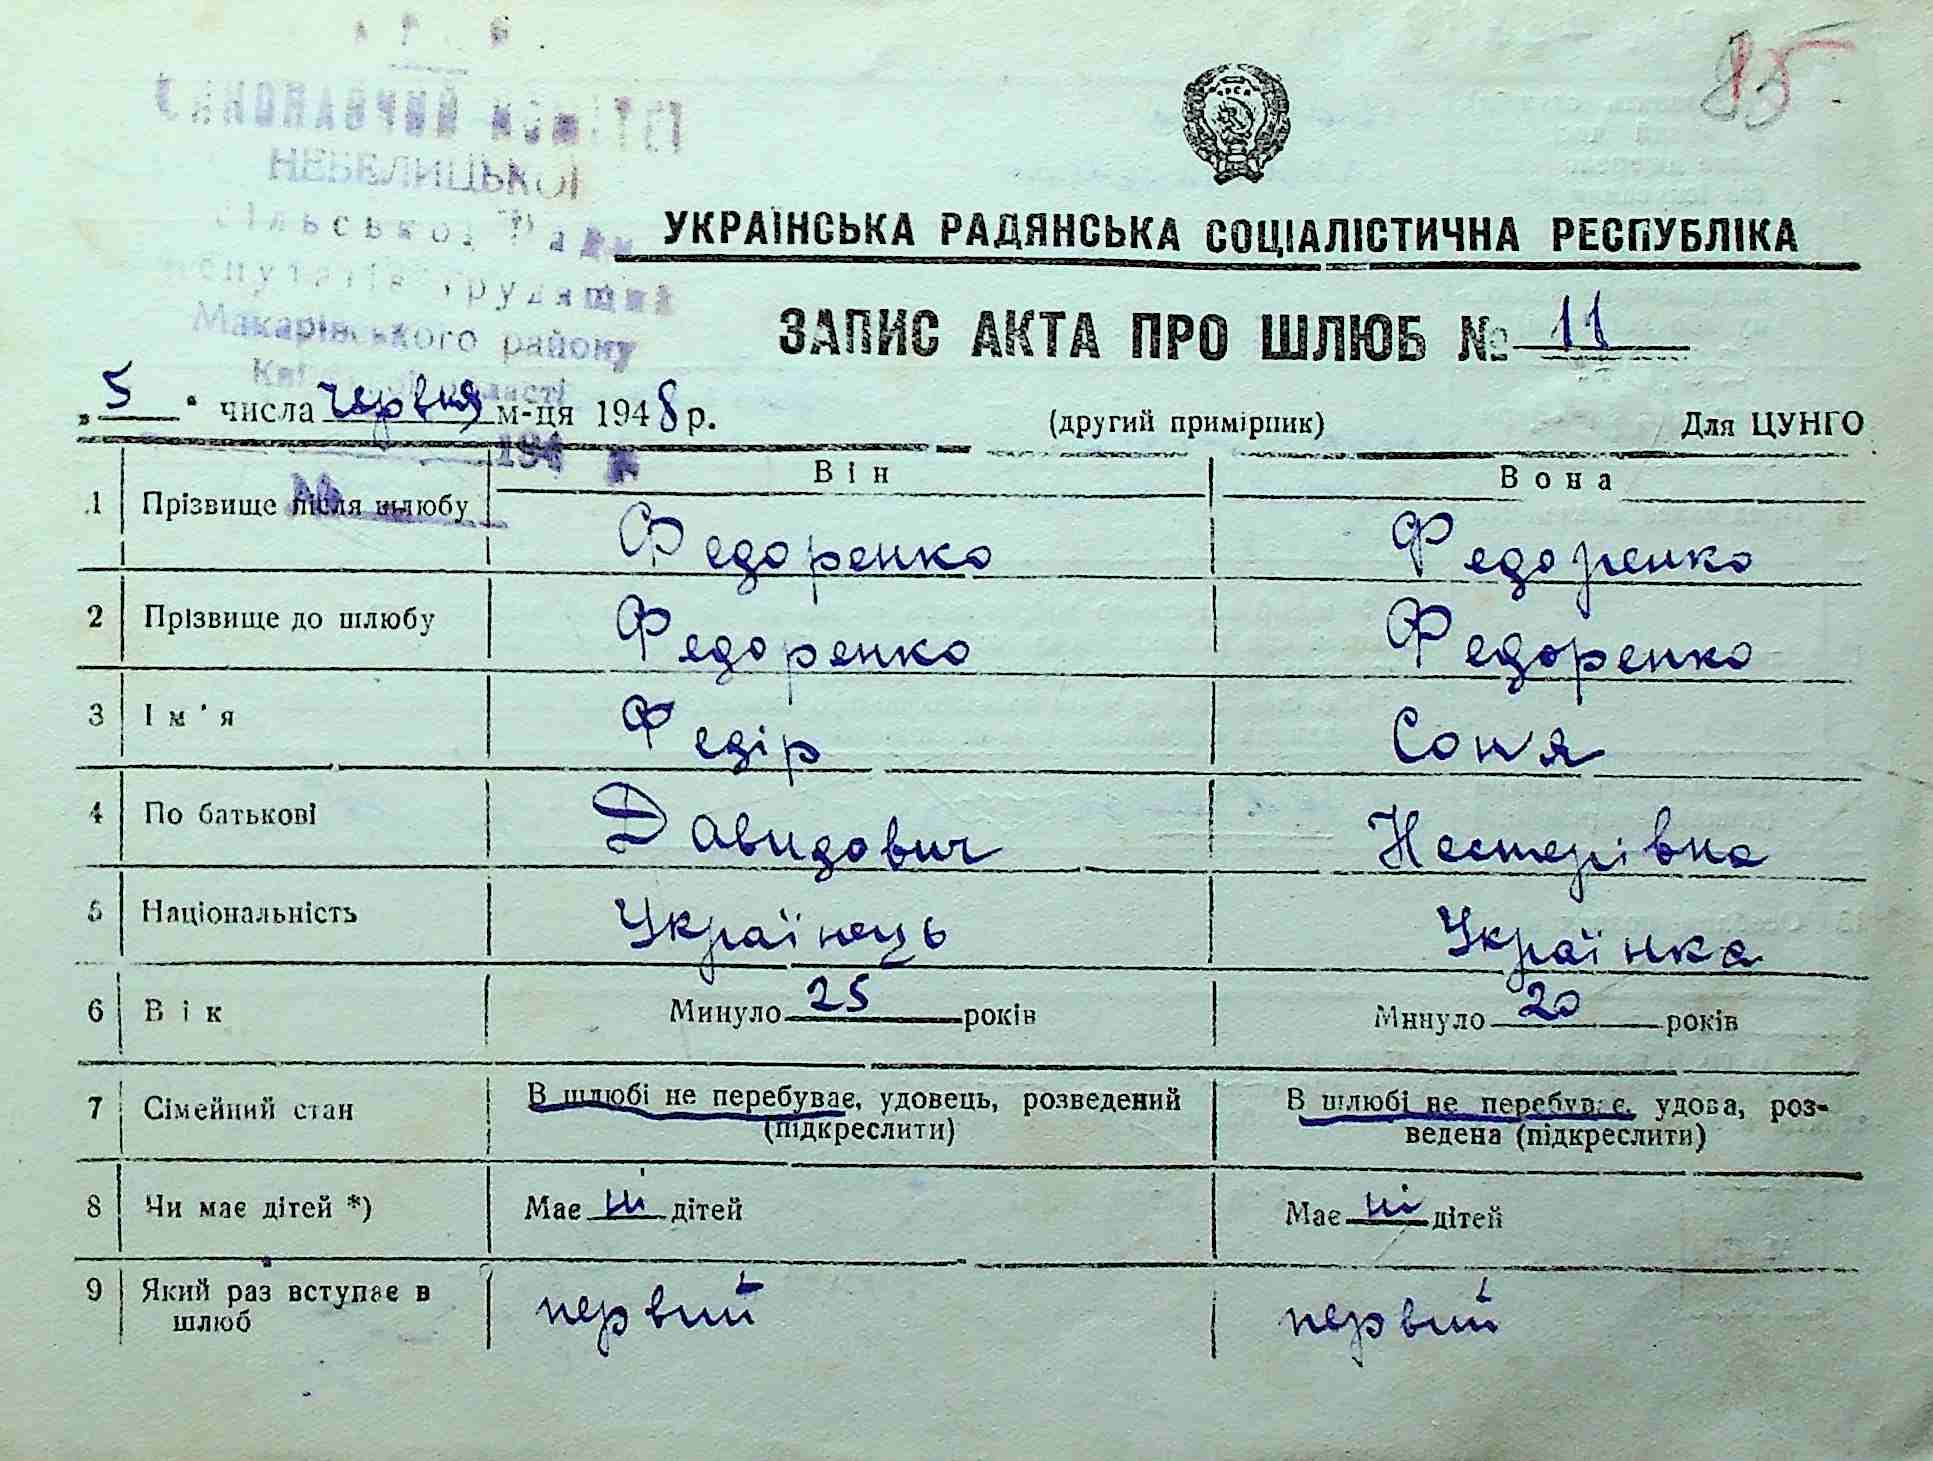 ВИКОНАВЧИЙ КОМІТЕТ
НЕБЕЛИЦЬКОЇ
Сільської Ради
депутатів трудящих
Макарівського району
Київської області
194 р.
№
85
УКРАЇНСЬКА РАДЯНСЬКА СОЦІАЛІСТИЧНА РЕСПУБЛІКА
ЗАПИС АКТА ПРО ШЛЮБ № 11
„5“ числа червня м-ця 1948 р. (другий примірник) Для ЦУНГО
Він Вона
1 Прізвище після шлюбу Федоренко Федоренко
2 Прізвище до шлюбу Федоренко Федоренко
3 Ім'я Федір Соня
4 По батькові Давидович Нестерівна
5 Національність Українець Українка
6 Вік Минуло 25 років Минуло 20 років
7 Сімейний стан В шлюбі не перебуває, удовець, розведений В шлюбі не перебуває, удова, роз-
(підкреслити) ведена (підкреслити)
8 Чи має дітей *) Має ні дітей Має ні дітей
9 Який раз вступає в первий первий
шлюб